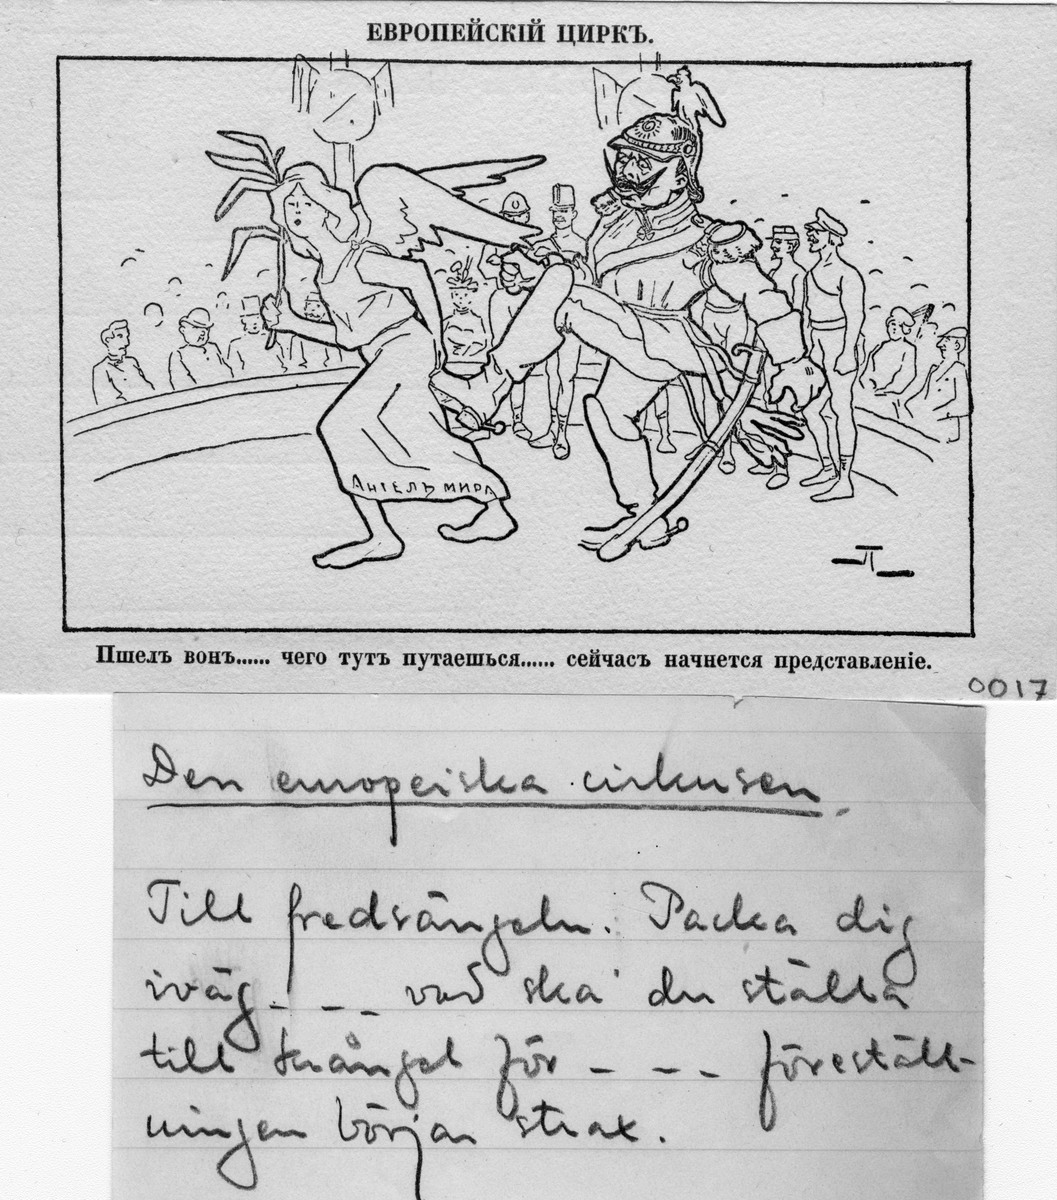 ЕВРОПЕЙСКІЙ ЦИРКЪ.
АНГЕЛЪ МИРА
П
Пшелъ вонъ...... чего тутъ путаешься...... сейчасъ начнется представленіе.
0017
Den europeiska cirkusen.
Till fredsängeln. Packa dig
iväg - - - vad ska du ställa
till krångel för - - - föreställ-
ningen börjar strax.